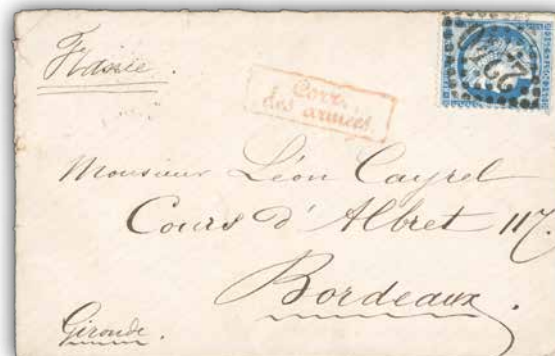 France.
2240
Corr.
des armées.
Monsieur Léon Cayrel
Cours d'Albret 117.
Bordeaux.
Gironde.